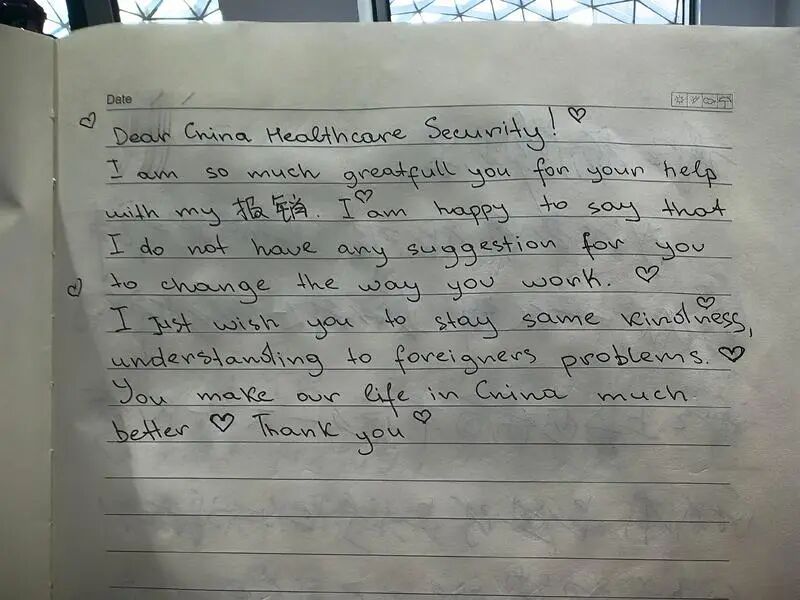 Date / /
♡ Dear China Healthcare Security! ♡
I am so much greatfull you for your help
with my 报销. I ♡ am happy to say that
I do not have any suggestion for you
♡ to change the way you work. ♡
I just wish you to stay same kindness, ♡
understanding to foreigners problems. ♡
You make our life in China much
better ♡ Thank you ♡